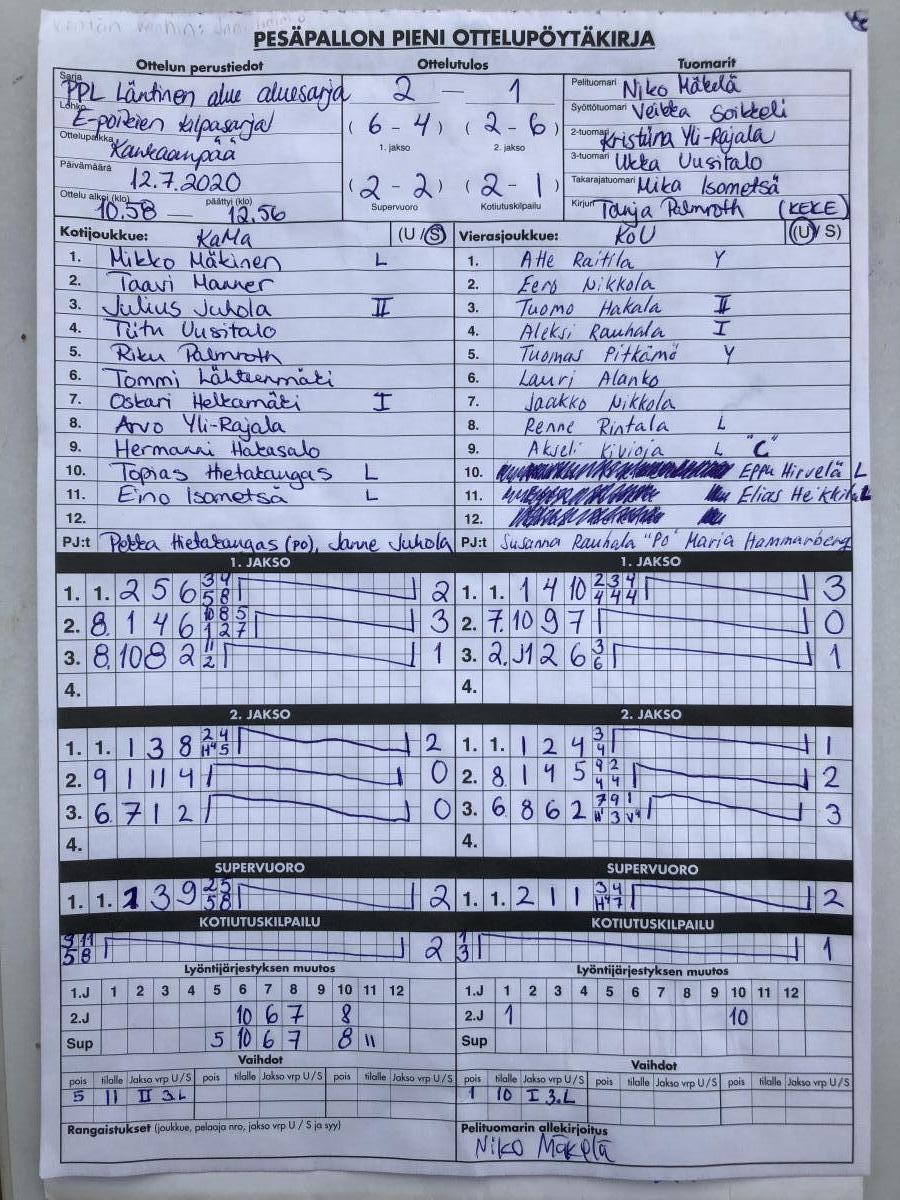 PESÄPALLON PIENI OTTELUPÖYTÄKIRJA
Ottelun perustiedot Ottelutulos Tuomarit
Sarja PPL Läntinen alue aluesarja
Lohko E-poikien kilpasarja
Ottelupaikka Kankaanpää
Päivämäärä 12.7.2020
Ottelu alkoi (klo) 10.58 — päättyi (klo) 12.56
2 — 1
(6 - 4) (2 - 6)
1. jakso 2. jakso
(2 - 2) (2 - 1)
Supervuoro Kotiutuskilpailu
Pelituomari Niko Mäkelä
Syöttötuomari Veikka Soikkeli
2-tuomari Kristiina Yli-Rajala
3-tuomari Ukka Uusitalo
Takarajatuomari Mika Isometsä
Kirjuri Tanja Palmroth (KEKE)
Kotijoukkue: KaMa (U/S)
1. Mikko Mäkinen L
2. Taavi Manner
3. Julius Juhola II
4. Tiitu Uusitalo
5. Riku Palmroth
6. Tommi Lähteenmäki
7. Oskari Helkamäki I
8. Arvo Yli-Rajala
9. Hermanni Hakasalo
10. Topias Hietakangas L
11. Eino Isometsä L
12.
PJ:t Pekka Hietakangas (PO), Janne Juhola
Vierasjoukkue: KoU (U/S)
1. Atte Raitila Y
2. Eero Nikkola
3. Tuomo Hakala II
4. Aleksi Rauhala I
5. Tuomas Pitkämö Y
6. Lauri Alanko
7. Jaakko Nikkola
8. Renne Rintala L
9. Akseli Kivioja L "C"
10. Eppu Hirvelä L
11. Elias Heikkilä L
12.
PJ:t Susanna Rauhala "PO" Maria Hammarberg
1. JAKSO 1. JAKSO
1. 1. 2 5 6 3 4 2
5 8
2. 8. 1 4 6 10 8 5 3
1 2 7
3. 8. 10 8 2 11 1
2
4.
1. 1. 1 4 10 2 3 4 3
4 4 4
2. 7. 10 9 7 0
3. 2. 11 2 6 3 1
6
4.
2. JAKSO 2. JAKSO
1. 1. 1 3 8 2 4 2
H4 5
2. 9 1 11 4 0
3. 6. 7 1 2 0
4.
1. 1. 1 2 4 3 1
4
2. 8. 1 4 5 9 2 2
4 4
3. 6. 8 6 2 7 9 1 3
3 V4
4.
SUPERVUORO SUPERVUORO
1. 1. 1 3 9 2 5 2
5 8
1. 1. 2 1 1 3 4 2
H4 7
KOTIUTUSKILPAILU KOTIUTUSKILPAILU
9 11 2
5 8
1 1
3
Lyöntijärjestyksen muutos
1.J 1 2 3 4 5 6 7 8 9 10 11 12
2.J 10 6 7 8
Sup 5 10 6 7 8 11
Vaihdot
pois tilalle Jakso vrp U/S pois tilalle Jakso vrp U/S pois tilalle Jakso vrp U/S
5 11 II 3.L
Rangaistukset (joukkue, pelaaja nro, jakso vrp U/S ja syy)
Lyöntijärjestyksen muutos
1.J 1 2 3 4 5 6 7 8 9 10 11 12
2.J 1 10
Sup
Vaihdot
pois tilalle Jakso vrp U/S pois tilalle Jakso vrp U/S pois tilalle Jakso vrp U/S
1 10 I 3.L
Pelituomarin allekirjoitus
Niko Mäkelä